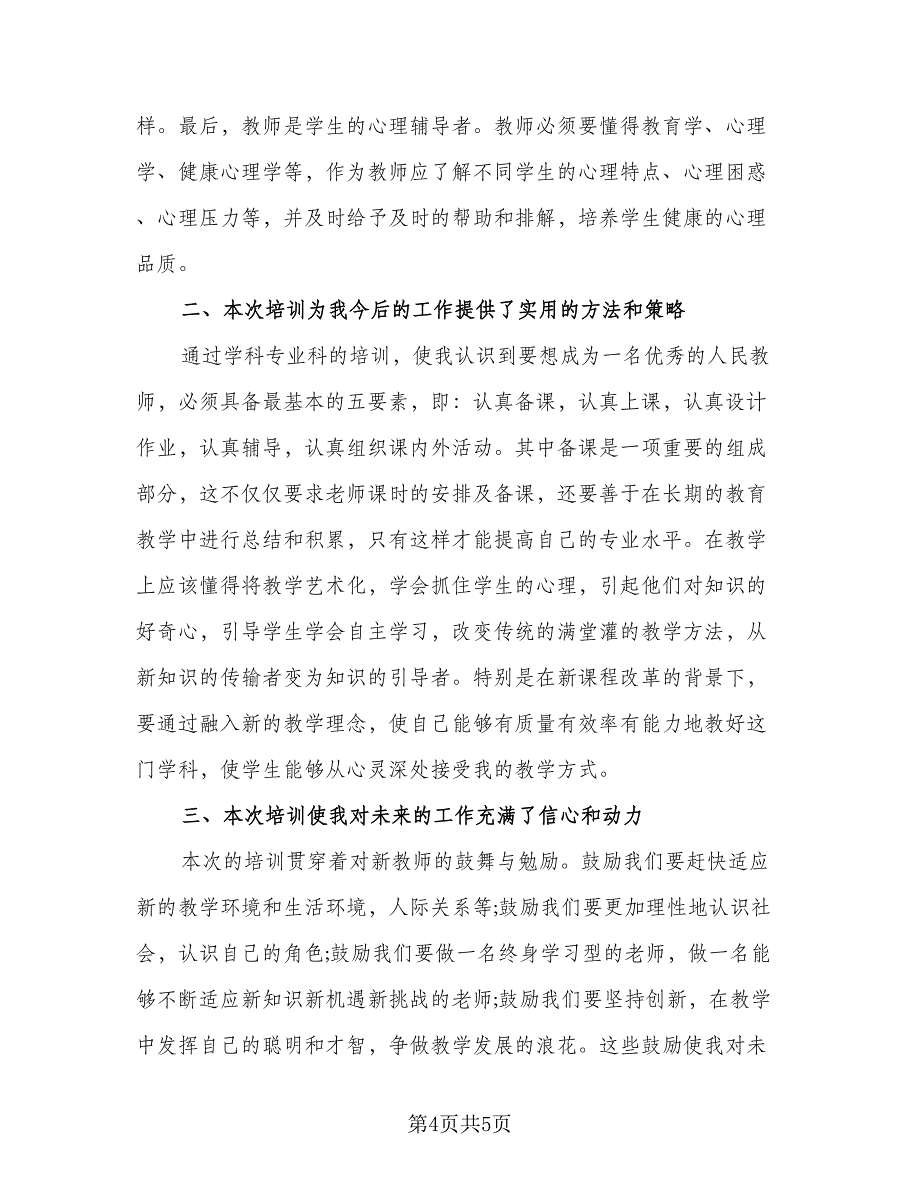 样。最后，教师是学生的心理辅导者。教师必须要懂得教育学、心理
学、健康心理学等，作为教师应了解不同学生的心理特点、心理困惑
、心理压力等，并及时给予及时的帮助和排解，培养学生健康的心理
品质。
二、本次培训为我今后的工作提供了实用的方法和策略
通过学科专业科的培训，使我认识到要想成为一名优秀的人民教
师，必须具备最基本的五要素，即：认真备课，认真上课，认真设计
作业，认真辅导，认真组织课内外活动。其中备课是一项重要的组成
部分，这不仅仅要求老师课时的安排及备课，还要善于在长期的教育
教学中进行总结和积累，只有这样才能提高自己的专业水平。在教学
上应该懂得将教学艺术化，学会抓住学生的心理，引起他们对知识的
好奇心，引导学生学会自主学习，改变传统的满堂灌的教学方法，从
新知识的传输者变为知识的引导者。特别是在新课程改革的背景下，
要通过融入新的教学理念，使自己能够有质量有效率有能力地教好这
门学科，使学生能够从心灵深处接受我的教学方式。
三、本次培训使我对未来的工作充满了信心和动力
本次的培训贯穿着对新教师的鼓舞与勉励。鼓励我们要赶快适应
新的教学环境和生活环境，人际关系等;鼓励我们要更加理性地认识社
会，认识自己的角色;鼓励我们要做一名终身学习型的老师，做一名能
够不断适应新知识新机遇新挑战的老师;鼓励我们要坚持创新，在教学
中发挥自己的聪明和才智，争做教学发展的浪花。这些鼓励使我对未
第4页共5页